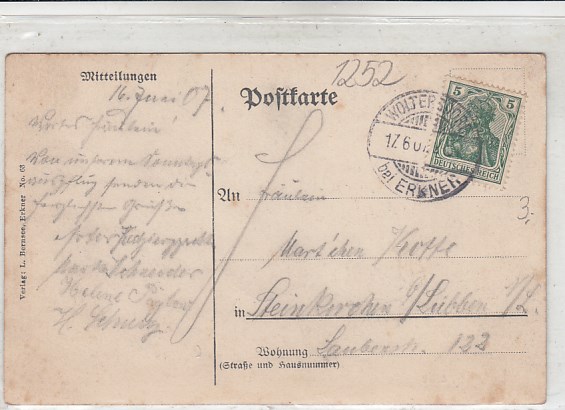 Mitteilungen
16. Juni 07.
Wertes Fräulein!
Von unserem Sonntags-
ausflug senden die
herzlichsten Grüße
Helene
H. Schulz
Verlag: L. Bernsee, Erkner No. 63
1252
Postkarte
WOLTERSDORF
17.6.07
bei ERKNER
5 5
DEUTSCHES REICH
3.-
An Fräulein
Mart'chen Koffe
in Steinkirchen b/Lübben N/L.
Wohnung 122
(Straße und Hausnummer)